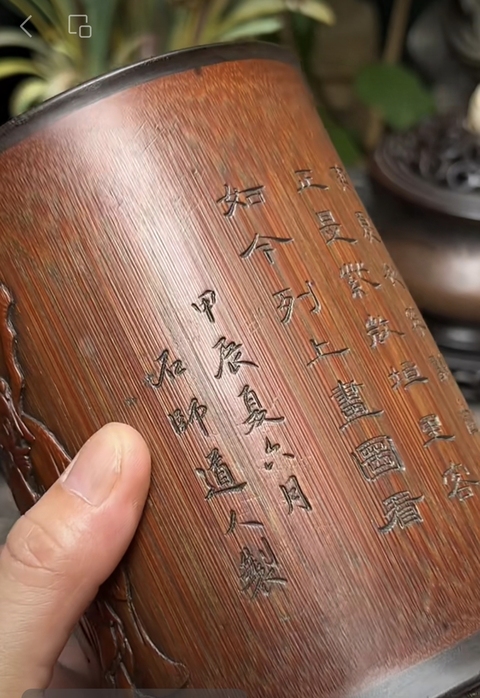 正是紫微垣里客
如今列上畫圖看
甲辰夏六月
石師道人製